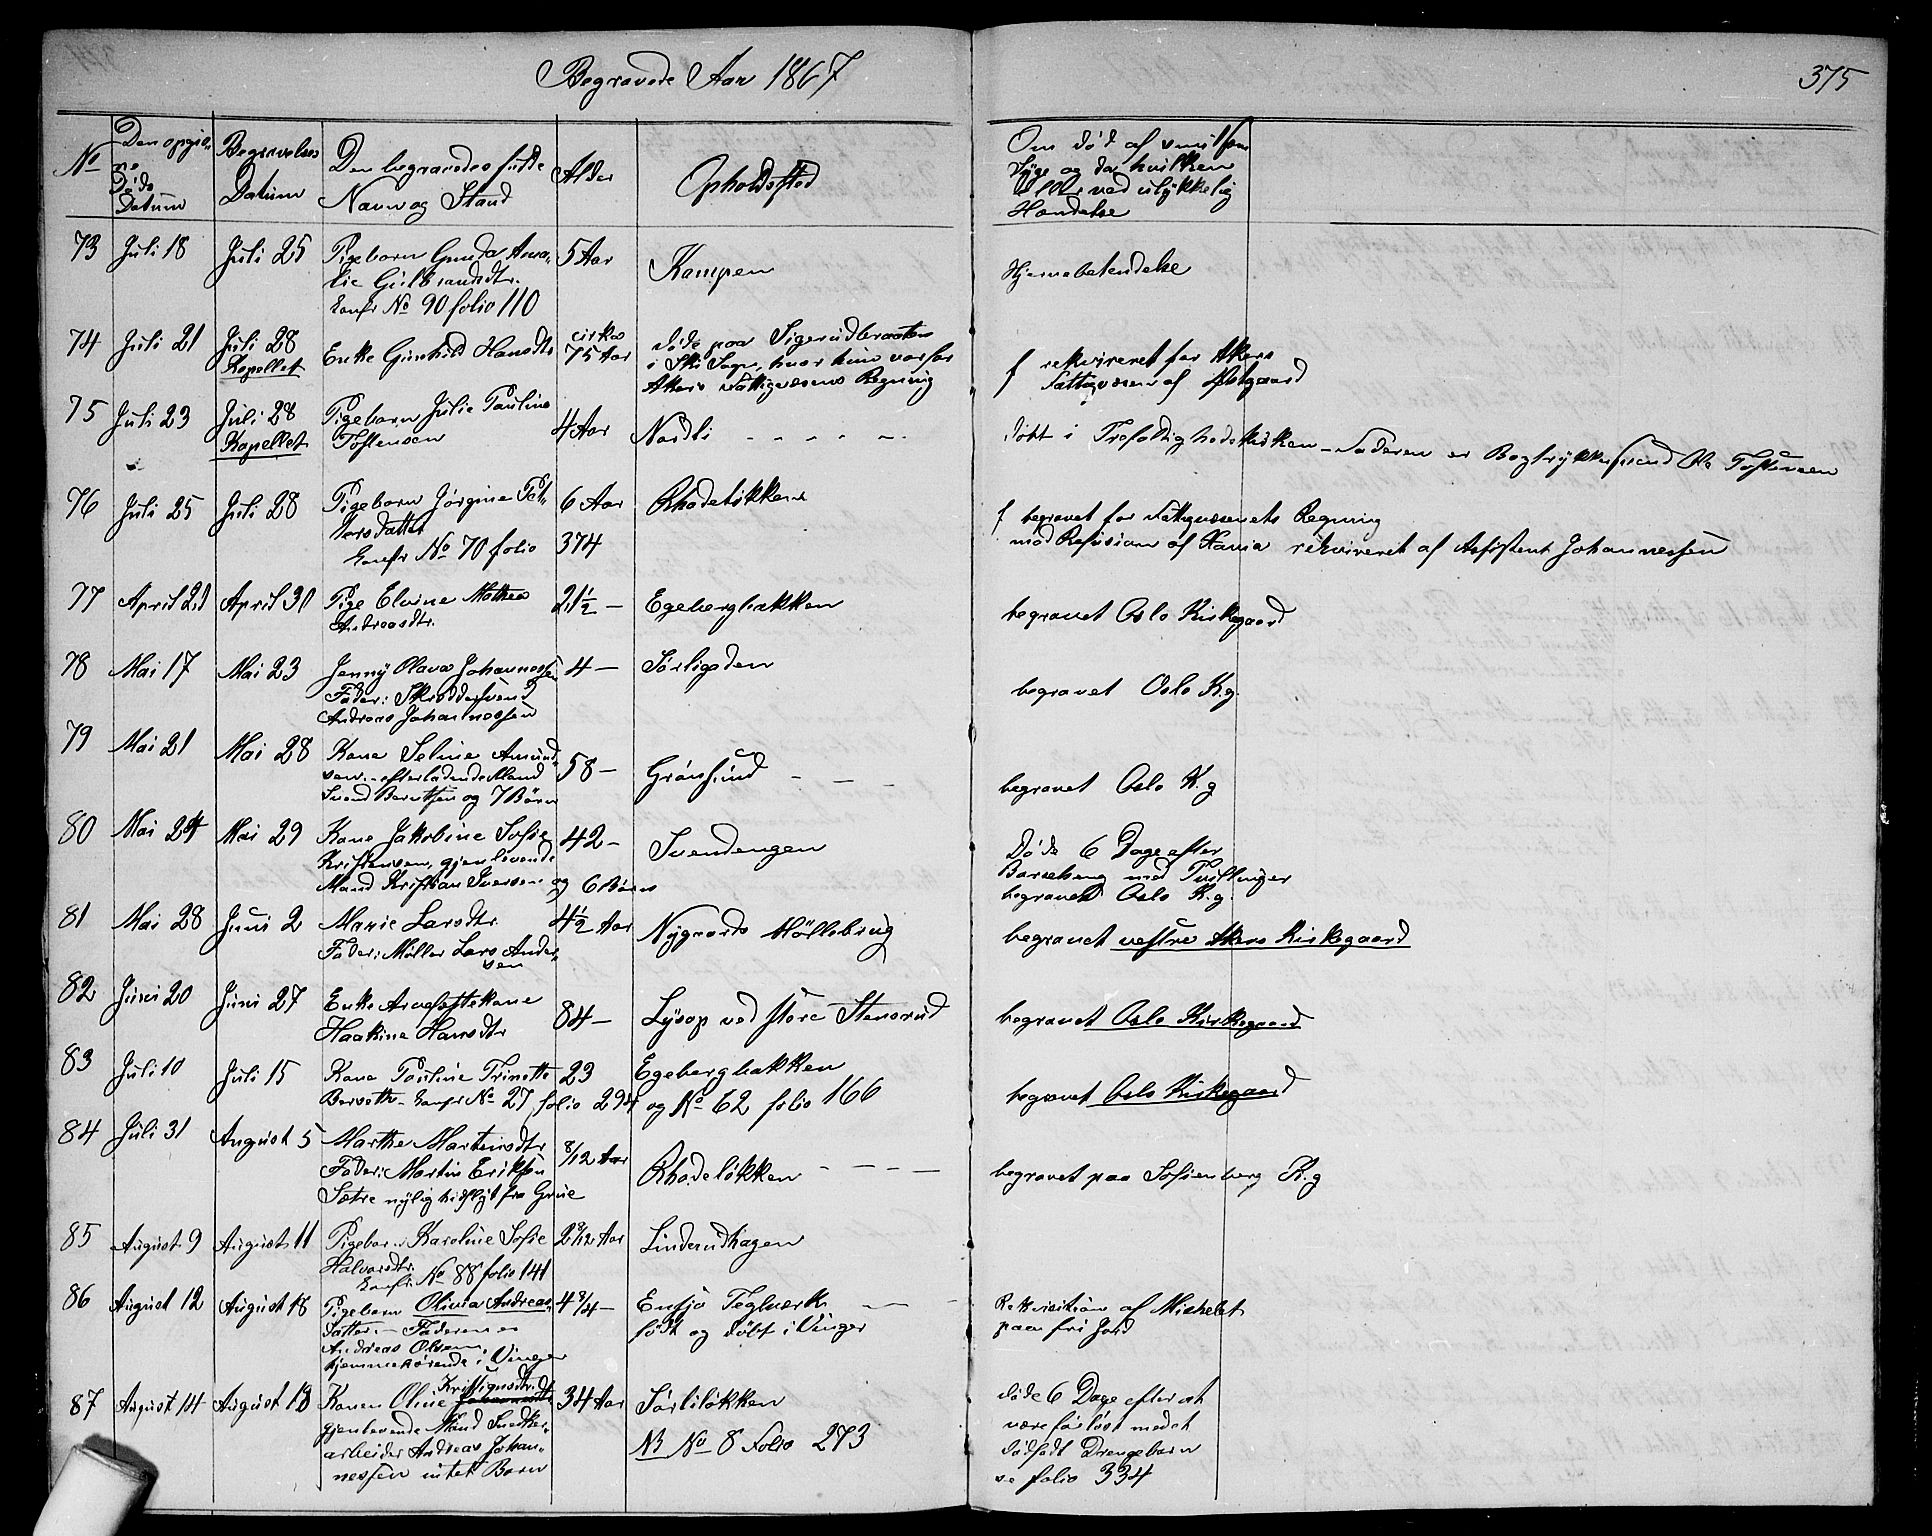 Begravede Aar 1867
375
No
Den opgivne Døds Datum
Begravelses Datum
Den begravedes fulde Navn og Stand
Alder
Opholdssted
Om død af smitsom
Syge og da hvilken
eller ved ulykkelig
Hændelse
73 Juli 18 Juli 25 Pigebarn Gunda Amalie Gulbrandsdtr. Confr No 90 folio 110 5 Aar Kampen Hjernebetendelse
74 Juli 21 Juli 28 Kapellet Enke Gunhild Hansdtr cirka 75 Aar døde paa Sigerudbraaten
i Ski Sogn, hvor hun var for
Akers Fattigvæsens Regning
f rekvireret for Akers
Fattigvæsen af Østgaard
75 Juli 23 Juli 28 Kapellet Pigebarn Julie Pauline Tostensen 4 Aar Nordli - - - - - døbt i Trefoldighedskirken - Faderen er Bogtrykkersvend Ole Tostensen
76 Juli 25 Juli 28 Pigebarn Jørgine Pettersdatter Confr No 70 folio 374 6 Aar Rhodeløkken
f begravet for Fattigvæsenets Regning
mod Refusion af Xania rekvireret af Assistent Johannessen
77 April 21 April 30 Pige Elvine Mathea Andreasdtr. 21 1/2 - Egebergbakken begravet Oslo Kirkegaard
78 Mai 17 Mai 23 Jenny Olava Johannessen
Fader: Skræddersvend
Andreas Johannessen 4 - Sørligaden begravet Oslo K.g.
79 Mai 21 Mai 28 Kone Seline Amundsen - efterladende Mand
Svend Berntsen og 7 Børn 58 - Grønsund - - begravet Oslo K.g
80 Mai 24 Mai 29 Kone Jakobine Sofie
Kristensen, gjenlevende
Mand Kristian Iversen og 6 Børn 42 - Svendengen
Døde 6 Dage efter
Barselseng med Tvillinger
begravet Oslo K.g.
81 Mai 28 Juni 2 Marie Larsdtr
Fader: Møller Lars Andersen 4 1/2 Aar Nygaards Møllebrug begravet vestre Akers Kirkegaard
82 Juni 20 Juni 27 Enke Arvefestekone
Haakine Hansdtr 84 - Lysop ved store Stensrud begravet Oslo Kirkegaard
83 Juli 10 Juli 15 Kone Pauline Trinette 23 Egebergbakken
Berveth - Confr No 27 folio 294 og No 62 folio 166 begravet Oslo Kirkegaard
84 Juli 31 August 5 Marthe Martinsdtr
Fader: Martin Eriksen
Sætre nylig hidflyt fra Grue 8/12 Aar Rhodeløkken - - - - begravet paa Sofienberg K.g
85 August 9 August 11 Pigebarn Karoline Sofie
Halvorsdtr.
Confr. No 88 folio 141 2 8/12 Aar Linderudhagen
86 August 12 August 18 Pigebarn Olivia Andreas
datter - Faderen er
Andreas Olsen,
hjemmehørende i Vinger 4 3/4 - Ensjø Teglværk - -
født og døbt i Vinger
Rekvisition af Michelet
paa fri Jord
87 August 14 August 18 Konen Oline Kristiansdtr.
gjenlevende Mand Snedker-
arbeider Andreas Johan-
nessen intet Barn 34 Aar Sørliløkken
NB No 8 Folio 273
døde 6 Dage efter at
være forløst med et
dødfødt Drengebarn
se folio 334